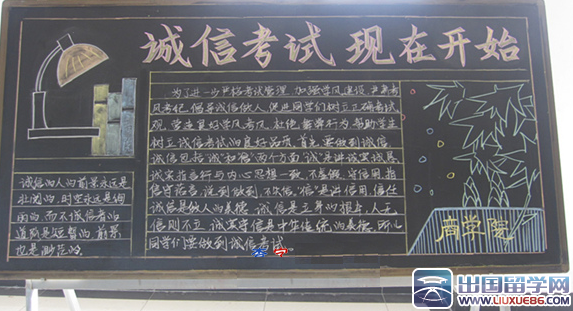 诚信考试 现在开始
为了进一步严格考试管理，加强学风建设，严肃考
风考纪，倡导诚信做人，促进同学们树立正确考试
观，营造良好学风考风，杜绝舞弊行为，帮助学生
树立诚信考试的良好品质，首先要做到诚信。
诚信包括“诚”和“信”两个方面，“诚”是讲诚实诚恳，
诚实指言行与内心思想一致，不虚假，守信用，指
信守诺言，说到做到，不失信，“信”是讲信用，信任
诚信是做人的美德，诚信是立身的根本，人无
信则不立，诚实守信是中华传统的美德，所以
同学们要做到诚信考试
诚信的人的前景永远是
壮阔的，时空永远是绚
丽的，而不诚信者的
道路是短暂的，前景
也是渺茫的
商学院
出国留学网
www.liuxue86.com